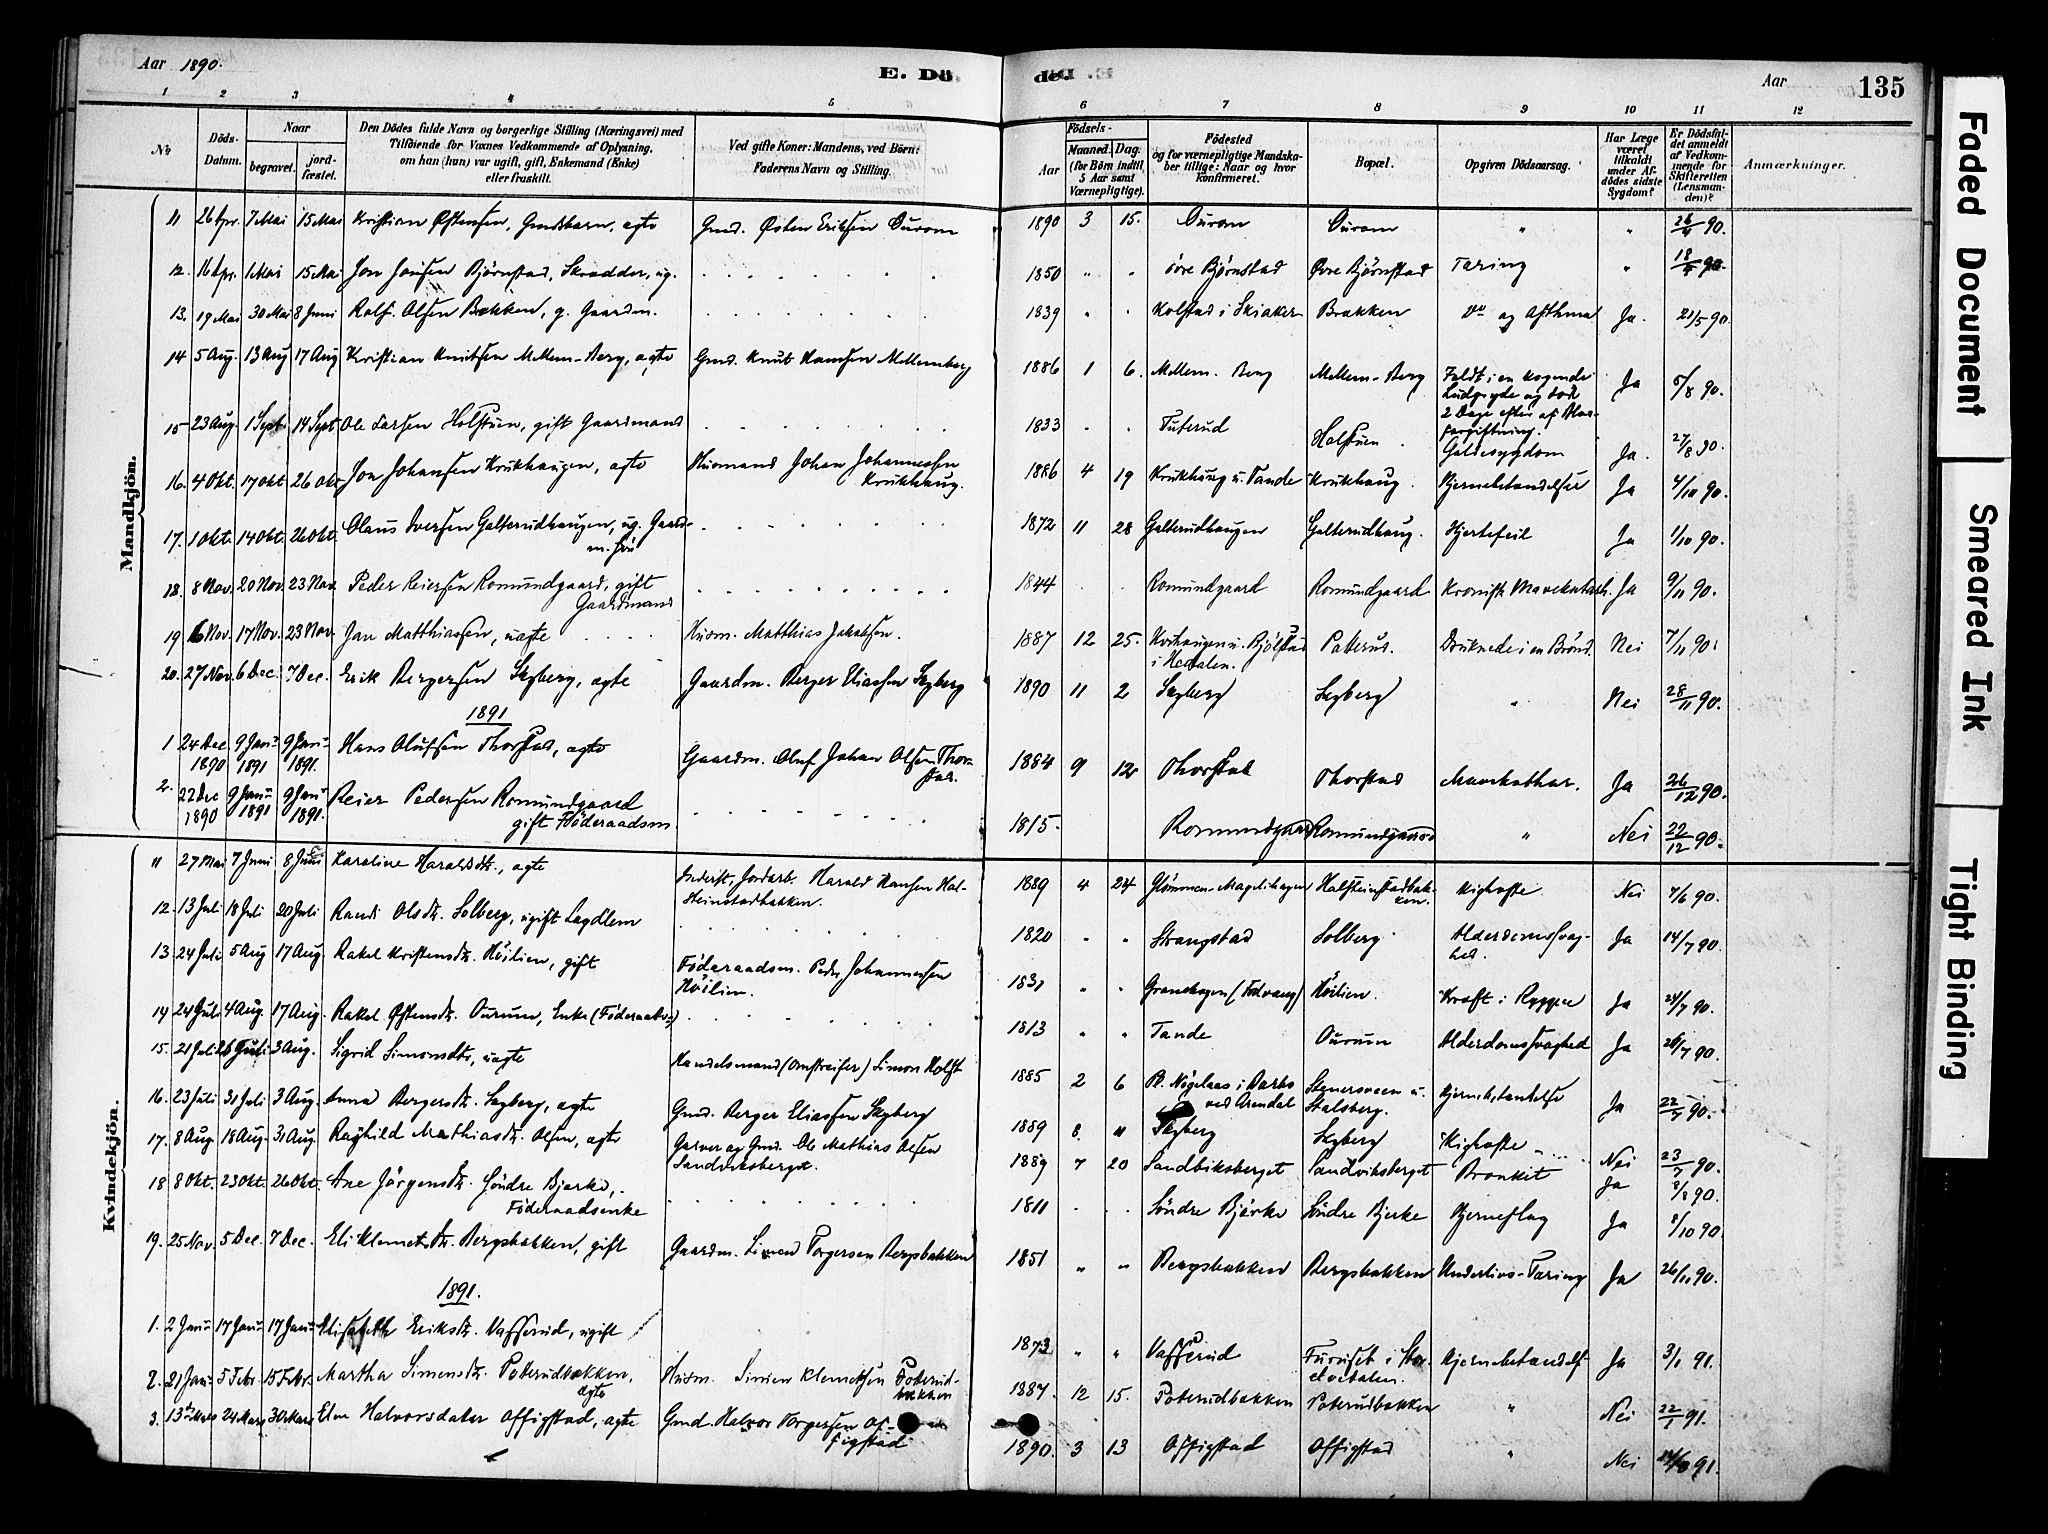 Aar 1890.
E. Dö
de.
Aar
135
1 2 3 4 5 6 7 8 9 10 11 12
No
Döds-Datum.
Naar
begravet.
jordfæstet.
Den Dödes fulde Navn og borgerlige Stilling (Næringsvei) med
Tilföiende for Voxnes Vedkommende af Oplysning,
om han (hun) var ugift, gift, Enkemand (Enke)
eller fraskilt.
Ved gifte Koner: Mandens, ved Börn:
Faderens Navn og Stilling.
Födsels-
Aar
Maaned. Dag.
(for Börn indtil
5 Aar samt
Værnepligtige).
Födested
og for værnepligtige Mandska-
ber tillige: Naar og hvor
konfirmeret.
Bopæl.
Opgiven Dödsaarsag.
Har Læge
været
tilkaldt
under Af-
dödes sidste
Sygdom?
Er Dödsfal-
det anmeldt
af Vedkom-
mende for
Skifteretten
(Lensman-
den)?
Anmærkninger.
Mandkjön.
11 26 Apr. 7 Mai 15 Mai Kristian Østensen, Gmdsbarn, ægte Gmd. Østen Eriksen Ourom 1890 3 15. Ourom Ourom " " 26/4 90.
12. 16 Apr. 1 Mai 15 Mai Jon Jonsen Bjørnstad, Skrædder, ug. 1850 " " övre Bjørnstad Øvre Bjørnstad Tæring " 18/4 90.
13. 19 Mai 30 Mai 8 Juni Rolf Olsen Bakken, g. Gaardm. 1839 " " Kolstad i Skiaker Brakken og Asthma Ja. 21/5 90.
14 5 Aug. 13 Aug 17 Aug Kristian Knutsen Mellem-Berg, ægte Gmd. Knut Hansen Mellemberg 1886 1 6. Mellem-Berg Mellem-Berg Faldt i en kogende
Ludgryde og död
2 Dage efter af Blod-
forgiftning. Ja 5/8 90.
15 23 Aug. 1 Sept. 14 Sept Ole Larsen Holstuen, gift Gaardmand 1833 Tuterud Holstuen Galdesygdom Ja. 27/8 90.
16. 4 Okt. 17 Okt 26 Okt. Jon Johansen Krukhaugen, ægte Husmand Johan Johannessen
Krukhaug. 1886 4 19 Krukhaug u. Tande Krukhaug. Hjernebetændelse Ja 4/10 90.
17. 1 Okt. 14 Okt. 26 Okt. Olaus Iversen Galterudhaugen, ug. Gaard-
m. Sön 1872 11 28 Galterudhaugen Galterudhaug. Hjertefeil Ja 1/10 90.
18. 8 Nov. 20 Nov. 23 Nov. Peder Reiersen Romundgaard, gift
Gaardmand 1844 Romundgaard Romundgaard Kronisk Mavekatarh. Ja 9/11 90.
19 6 Nov. 17 Nov. 23 Nov. Jan Matthiassen, uægte Husm. Matthias Jakobsen. 1887 12 25. u. Bjölstad
i Hedalen. Paterud. Druknede i en Brönd. Nei 7/11 90.
20. 27 Nov. 6 Dec. 7 Dec. Erik Bergersen Sygberg, ægte Gaardm. Berger Eliassen Sygberg 1890 11 2 Sygberg Sygberg " Nei 28/11 90.
1891
1 24 Dec 1890 9 Janu 1891 9 Janu 1891. Hans Olufsen Thorstad, ægte Gaardm. Oluf Johan Olsen Thor-
stad. 1884 9 12 Thorstad Thorstad Mavekathar. Ja 26/12 90.
2. 22 Dec 1890 9 Janu 1891 9 Janu 1891. Reier Pedersen Romundgaard
gift Föderaadsm. 1815. Romundgaard Romundgaard " Nei 22/12 90.
Kvindekjön.
11 27 Mai 7 Juni 8 Juni Karoline Haraldsdtr., ægte Inderst, Jordarb. Harald Hansen Hal-
steinstadbakken. 1889 4 24 Halsteinstadbak-
ken. Kighoste Nei 7/6 90.
12. 13 Juli 18 Juli 20 Juli Randi Olsdtr. Solberg, ugift Lægdlem 1820 " " Strangstad Solberg Alderdomssvag-
hed. Ja 14/7 90.
13. 24 Juli 5 Aug 17 Aug. Rakel Kristensdtr. Höilien, gift Föderaadsm. Peder Johannessen
Höilien. 1831 " " Höilien. Kræft i Ryggen Ja 24/7 90.
14 24 Juli 4 Aug. 17 Aug. Rakel Østensdtr. Ourum, Enke 1813 " " Tande Ourum Alderdomssvaghed Ja 26/7 90.
15. 21 Juli 26 Juli 3 Aug. Sigrid Simonsdtr, uægte Handelsmand (Omstreifer) Simon Holst 1885 2 6 i Barbo
ved Arendal Stenersveen u.
Stalsberg. Hjernebetændelse Ja 22/7 90.
16. 23 Juli 31 Juli 3 Aug. Anna Bergersdtr. Sygberg, ægte Gmd. Berger Eliassen Sygberg 1889 8. " Sygberg Sygberg Kighoste Nei 23/7 90.
17. 8 Aug 18 Aug. 31 Aug. Raghild Mathiasdtr. Olsen, ægte Garver og Gmd. Ole Mathias Olsen
Sandviksberget. 1889 7 20 Sandbiksberget Sandviksberget Bronkit Ja 8/8 90.
18 8 Okt. 23 Okt. 26 Okt. Ane Jörgensdtr. Söndre Bjerke,
Föderaadsenke 1811 Söndre Bjerke Söndre Bjerke Hjerneslag Ja 8/10 90.
19. 25 Nov. 5 Dec. 7 Dec. Eli Klemetsdtr. Bergsbakken, gift Gaardm. Simen Torgersen Bergsbakken 1851 " " Bergsbakken Bergsbakken Underlivs-Tæring Ja 26/11 90.
1891.
1. 2 Janu 17 Janu 17 Janu Elisabeth Eriksdtr. Vasserud, ugift 1873 " " Vasserud Furuset i Stor-
elvedalen. Hjernebetændelse Ja 3/1 91.
2. 21 Janu 5 Febr. 15 Febr. Martha Simensdtr. Poterudbakken,
ægte Husm. Simen Klemetsen Poterud-
bakken 1887. 12 15. Poterudbakken Poterudbakken " Nei 22/1 91.
3. 13 Mars 24 Mars 30 Mars Elen Halvorsdatter Offigstad, ægte Gmd. Halvor Torgersen Of-
figstad 1890. 3 13 Offigstad Offigstad " Nei 91.
Faded Document
Smeared Ink
Tight Binding